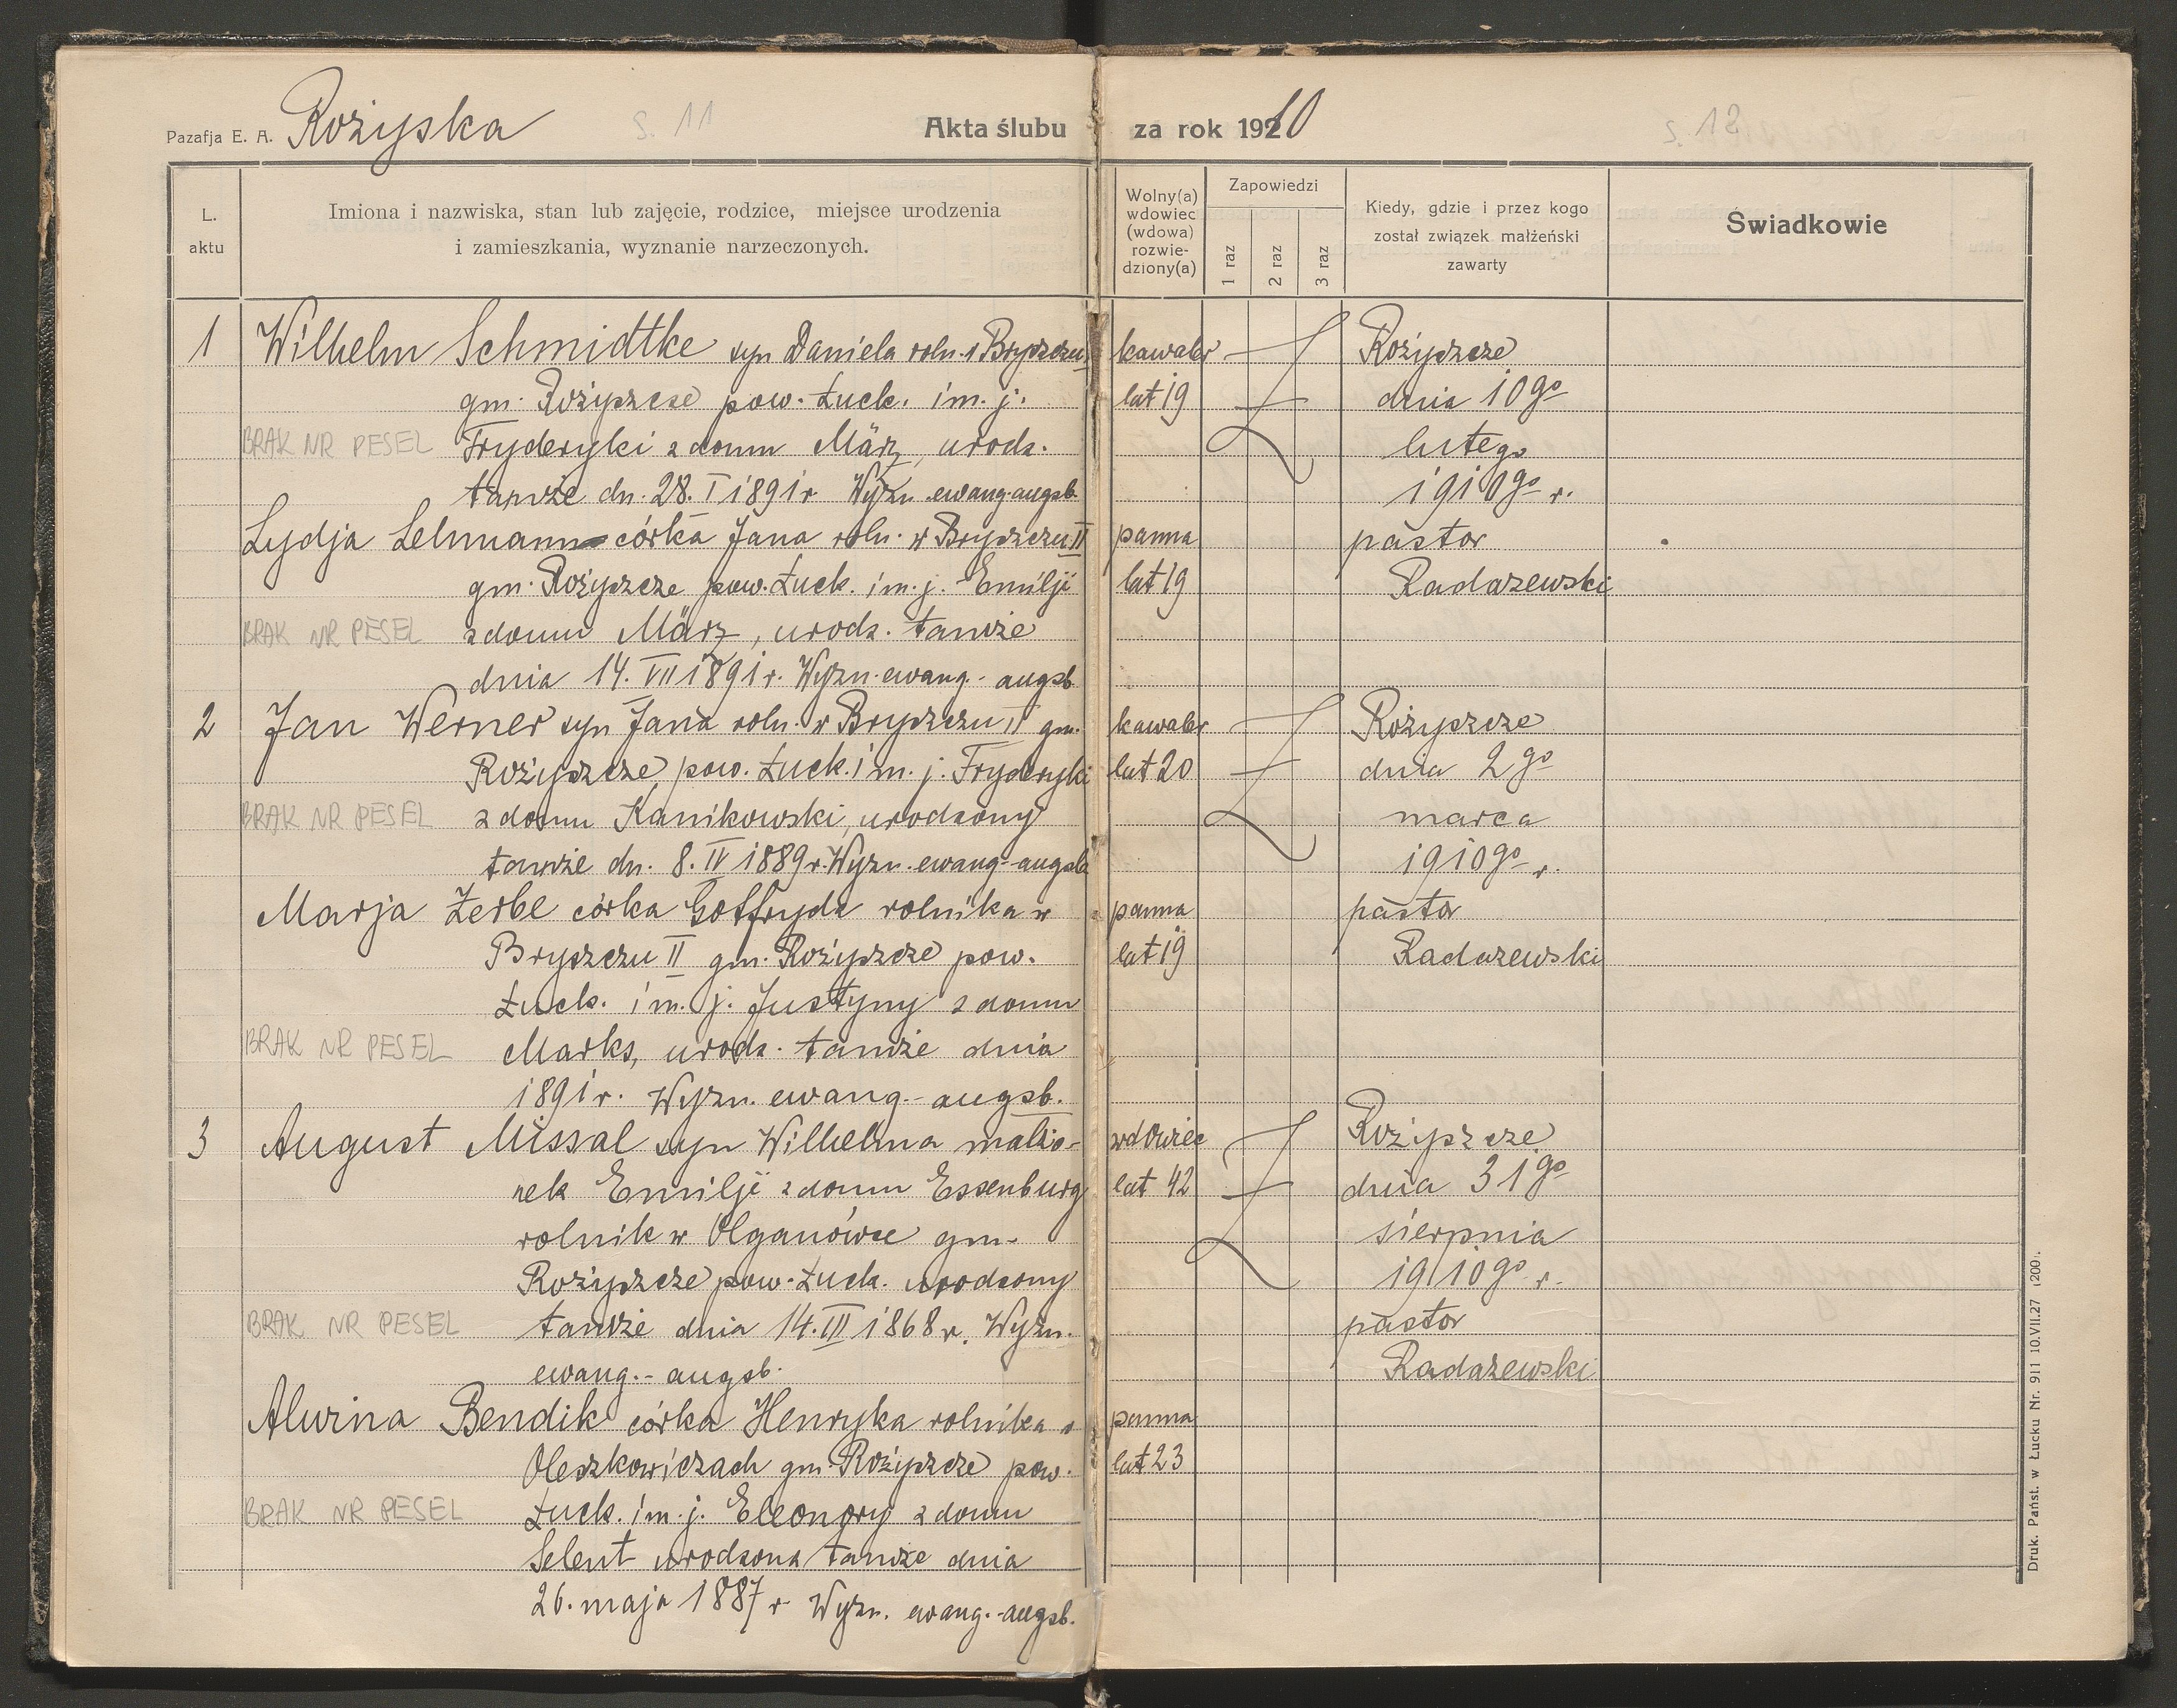 Pazafja E. A. Rożyska s. 11 Akta ślubu za rok 1910 s. 12
L. aktu
Imiona i nazwiska, stan lub zajęcie, rodzice, miejsce urodzenia
i zamieszkania, wyznanie narzeczonych.
Wolny(a)
wdowiec
(wdowa)
rozwie-
dziony(a)
Zapowiedzi
1 raz
2 raz
3 raz
Kiedy, gdzie i przez kogo
został związek małżeński
zawarty
Świadkowie
1 Wilhelm Schmidtke syn Daniela roln. Bryszczu
gm. Rożyszcze pow. Łuck. i m. j.
BRAK NR PESEL Fryderyki z domu März, urodz.
tamże dn. 28. I 1891 r Wyzn. ewang-augsb.
kawaler
lat 19
Rożyszcze
dnia 10go
lutego
1910go r.
Lydja Lehmann córka Jana roln. w Bryszczu II
gm. Rożyszcze pow. Łuck. i m. j. Emilji
BRAK NR PESEL z domu März, urodz. tamże
dnia 14. VII 1891 r. Wyzn. ewang.- augsb
panna
lat 19
pastor
Radaszewski
2 Jan Werner syn Jana roln. w Bryszczu II gm.
Rożyszcze pow. Łuck. i m. j. Fryderyki
BRAK NR PESEL z domu Kanikowski, urodzony
tamże dn. 8. IV 1889 r. Wyzn. ewang-augsb
kawaler
lat 20
Rożyszcze
dnia 2go
marca
1910go r.
Marja Zerbe córka Gottfryda rolnika w
Bryszczu II gm. Rożyszcze pow.
Łuck. i m. j. Justyny z domu
BRAK NR PESEL Marks, urodz. tamże dnia
1891 r. Wyzn. ewang.- augsb.
panna
lat 19
pastor
Radaszewski
3 August Missal syn Wilhelma małżo-
nek Emilji z domu Essenburg
rolnik w Olganówce gm.
Rożyszcze pow. Łuck. urodzony
BRAK NR PESEL tamże dnia 14. III 1868 r. Wyzn.
ewang.- augsb.
wdowiec
lat 42
Rożyszcze
dnia 31go
sierpnia
1910go r.
pastor
Radaszewski
Alwina Bendik córka Henryka rolnika w
Oleszkowiczach gm. Rożyszcze pow.
BRAK NR PESEL Łuck. i m. j. Eleonory z domu
Selent urodzona tamże dnia
26. maja 1887 r Wyzn. ewang.-augsb.
panna
lat 23
Druk. Państ. w Łucku Nr. 911 10.VII.27 1200.